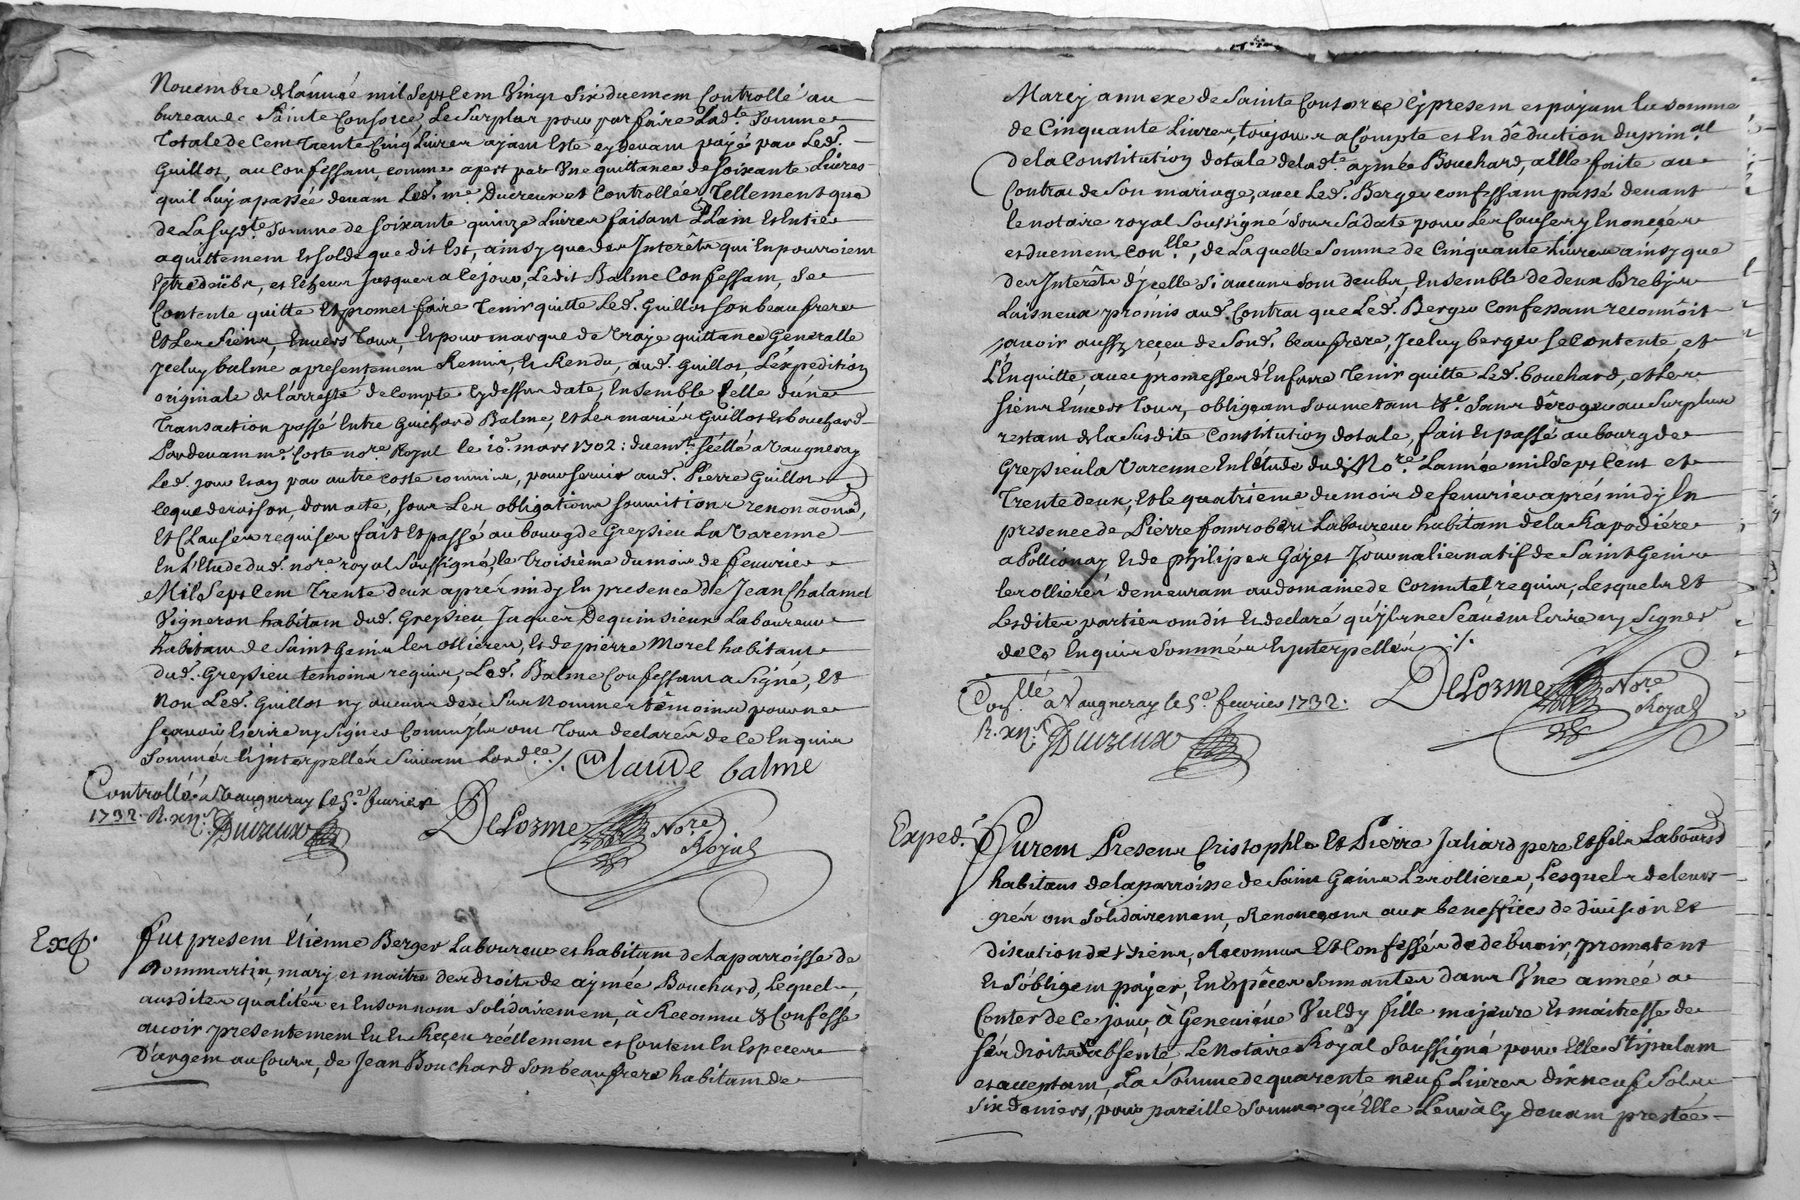 Novembre de lánnée mil Sept Cem Vingt Six duemem Controllé au
bureau de Sainte Consorce, Le Surplus pour parfaire Lad.te Somme
Totale de Cem Trente Cinq Livres ayam Este cydevam payé par Led.
Guillot, au Confessam, comme apert par Une quittance de soixante Livres
quil Luy a passée devam Led. me. Ducreux et Controllée Tellement que
de La Susd.te Somme de soixante quinze Livres faisant Plain et Entier
aquittemem et solde que dit Est, ainsy que des Interêts qui En pourroiem
Estre deübs, et Echeus Jusques a Ce jour, Ledit Balme Confessam, Se
Contente quitte Et promet faire Tenir quitte Led. Guillot Son beaufrere
Et Les Siens, Envers Tous, Et pour marque de Vraye quittance Generalle
Jceluy balme a presentemem Remis, Et Rendu, aud. Guillot, L'expedition
originale de l'arresté de Compte Cy dessus daté, Ensemble Celle dúne
Transaction passé Entre Guichard Balme, Et Les mariés Guillot Et bouchard
Pardevam me. Coste no.re Royal le 10. mars 1702: duem.t scéllé a Vaugneray
Led. jour Et an par autre coste commis, pour servir aud. Pierre Guillot
ce que de raison, dom acte, sous Les obligations soumitions renon aond,
Et Clauses requises fait Et passé au bourg de Greysieu La Varenne
En L'Etude dud. no.re royal Soussigné, le Troisième du mois de fevrier
Mil Sept Cem Trente deux aprés midy En presence de Jean Chalamel
Vigneron habitam dud. Greysieu, Jaques Dequinsieux Laboureur
habitam de Saint Genis les ollieres, Et de pierre Morel habitant
dud. Greysieu temoins requis, Led. Balme Confessam a Signé, Et
Non Led. Guillot ny aucun des Sus Nommes têmoins pour ne
sçavoir Escrire ny Signer Comm'jls om Tous declarés de Ce Enquis
Sommés Et jnterpellés Suivam Lord.ce ./. Claude balme
Controllé a Vaugneray le 5.e fevrier
1732. R. xn.s Ducreux Delorme No.re
Royal
Exp.
fut presem Etienne Berger Laboureur et habitam de la parroisse de
Dommartin, mary et maitre des droits de aymée Bouchard, Lequel,
ausdites qualités et En son nom Solidairemem, à Reconnu & Confessé
avoir presentemem Eu et Reçeu réellemem et Contem En Especes
D'argem au Cours, de Jean Bouchard Son beaufrere habitam de
Marcy annexe de Sainte Consorce cy presem et payam la somme
de Cinquante Livres, toujours a Compte et En dêduction du prin.al
de la Constitution dotale de lad.te aymée Bouchard, a Elle faite au
Contrac de Son mariage, avec Led. Berger confessam passé devant
le notaire royal Soussigné Sous Sa date pour Les Causes y Enoncées
et duemem Con.llé, de Laquelle Somme de Cinquante Livres ainsy que
des Interêts d'ycelle Si aucuns Som deubs, Ensemble de deux Brebis
Laisneux promis aud. Contrac que Led. Berger Confessam reconnôit
avoir aussy reçeu de Sond. beaufrere, Jceluy berger Se Contente, et
L'En quitte, avec promesse d'En faire Tenir quitte Led. bouchard, et Les
Siens Envers Tous, obligeam Soumetam &.e Sans dêroger au Surplus
restam de la Susdite Constitution dotale, fait Et passé au bourg de
Greysieu la Varenne En l'étude dudit No.re Lannée mil Sept Cent et
Trente deux, Et le quatrieme du mois de fevrier aprés midy En
presence de Pierre fonrobert Laboureur habitam de la Rapodiére
a Pollionay Et de philipes Gayet Journalier natif de Saint Genis
les ollieres demeuram au domaine de Cornutel, requis, Lesquels Et
Lesdites parties om dit Et declaré qu'jls ne Sçavoir Ecrire ny Signer
de Ce Enquis Sommés Et jnterpellés ./.
Con.llé a Vaugneray le 5.e fevrier 1732. Delorme No.re
R. xn.s Ducreux Royal
Exped.
Furem Presens Cristophle Et Pierre Juliard pere Et fils Laboureurs
habitans de la parroisse de Saint Genis Les ollieres, Lesquels de leurs
grés om Solidairemem, Renonçans aux beneffices de division Et
discution de + siens, Reconnus Et Confessés de debvoir, promettent
Et S'obligem payer, En Espêces Sonnantes dans Une année a
Conter de Ce jour, à Genevieve Vuldy fille majeure Et maitresse de
Ses droits absente Le Notaire Royal Soussigné pour Elle Stipulam
et acceptam, La Somme de quarente neuf Livres dix neuf Sols
Six deniers, pour pareille Somme qu'Elle Leur à Cy devam prestée